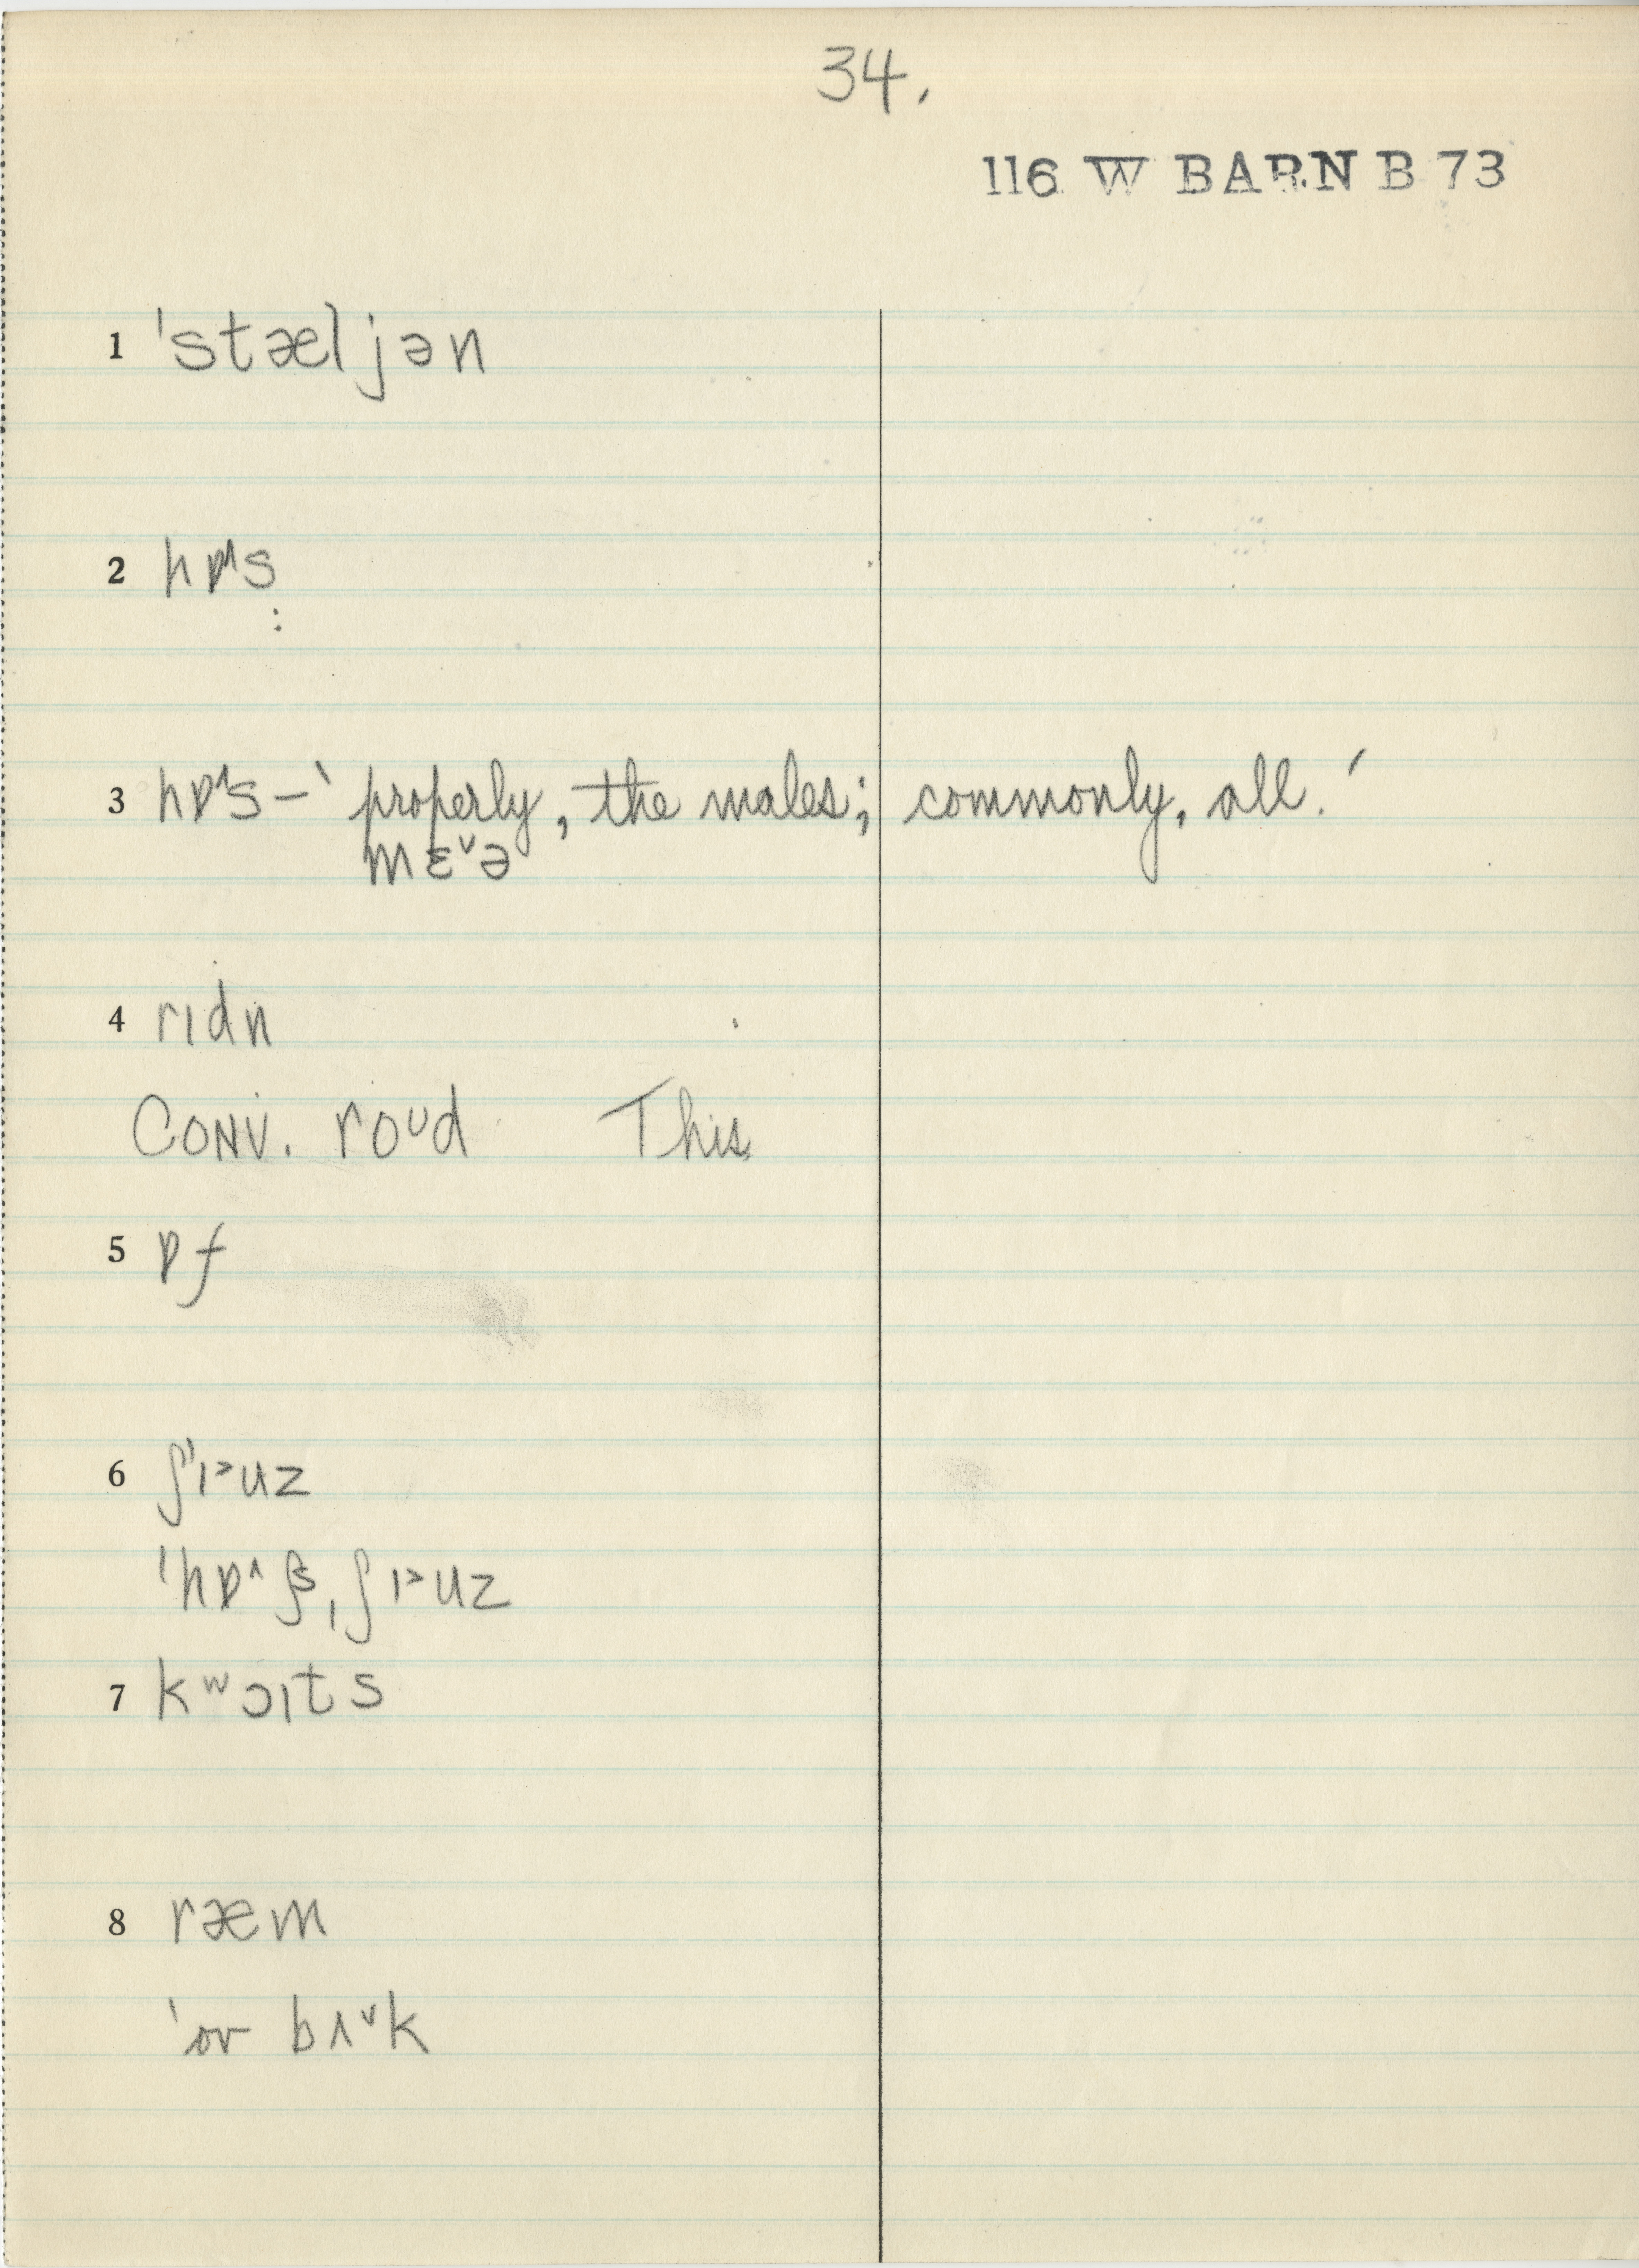 34.
116 W BARN B 73
1 ˈstæljən
2 hɒ˄s
:
3 hɒ˄s – ‵properly, the males; commonly, all.′
mɛ˅ə
4 rɪdn
Conv. roᴜd This
5 ɒf
6 ʃˈɪ˃uz
ˈhɒ˄ ˌʃɪ˃uz
7 kʷɔɪts
8 ræm
‵or bʌ˅k